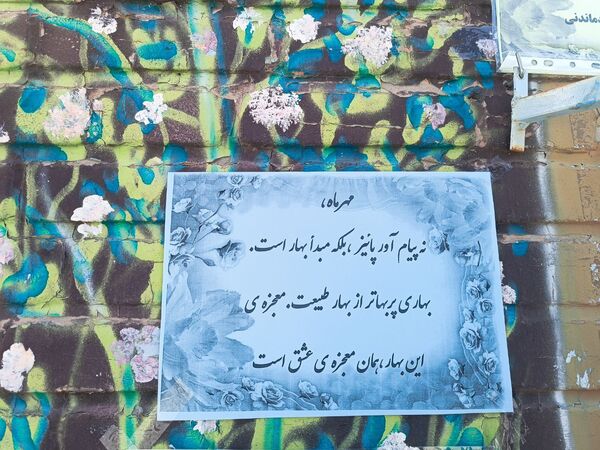 دماندنی
مهرماه،
نه پیام آور پائیز ، بلکه مبدأ بهار است.
بهاری پربهاتر از بهار طبیعت. معجزه ی
این بهار ، همان معجزه ی عشق است